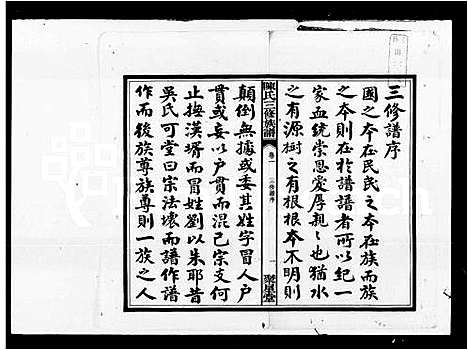 三修譜序
國之本在民民之本在族而族
之本則在於譜譜者所以紀一
家血統崇恩愛厚親之也猶水
之有源樹之有根根本不明則
陳氏三修族譜
卷一
三修譜序
一
聚星堂
顛倒無據或委其姓字冒人戶
貫或妄以戶貫而混己宗支何
止撫漢壻而冒姓劉以朱耶昔
吳氏可堂曰宗法壞而譜作譜
作而後族尊族尊則一族之人